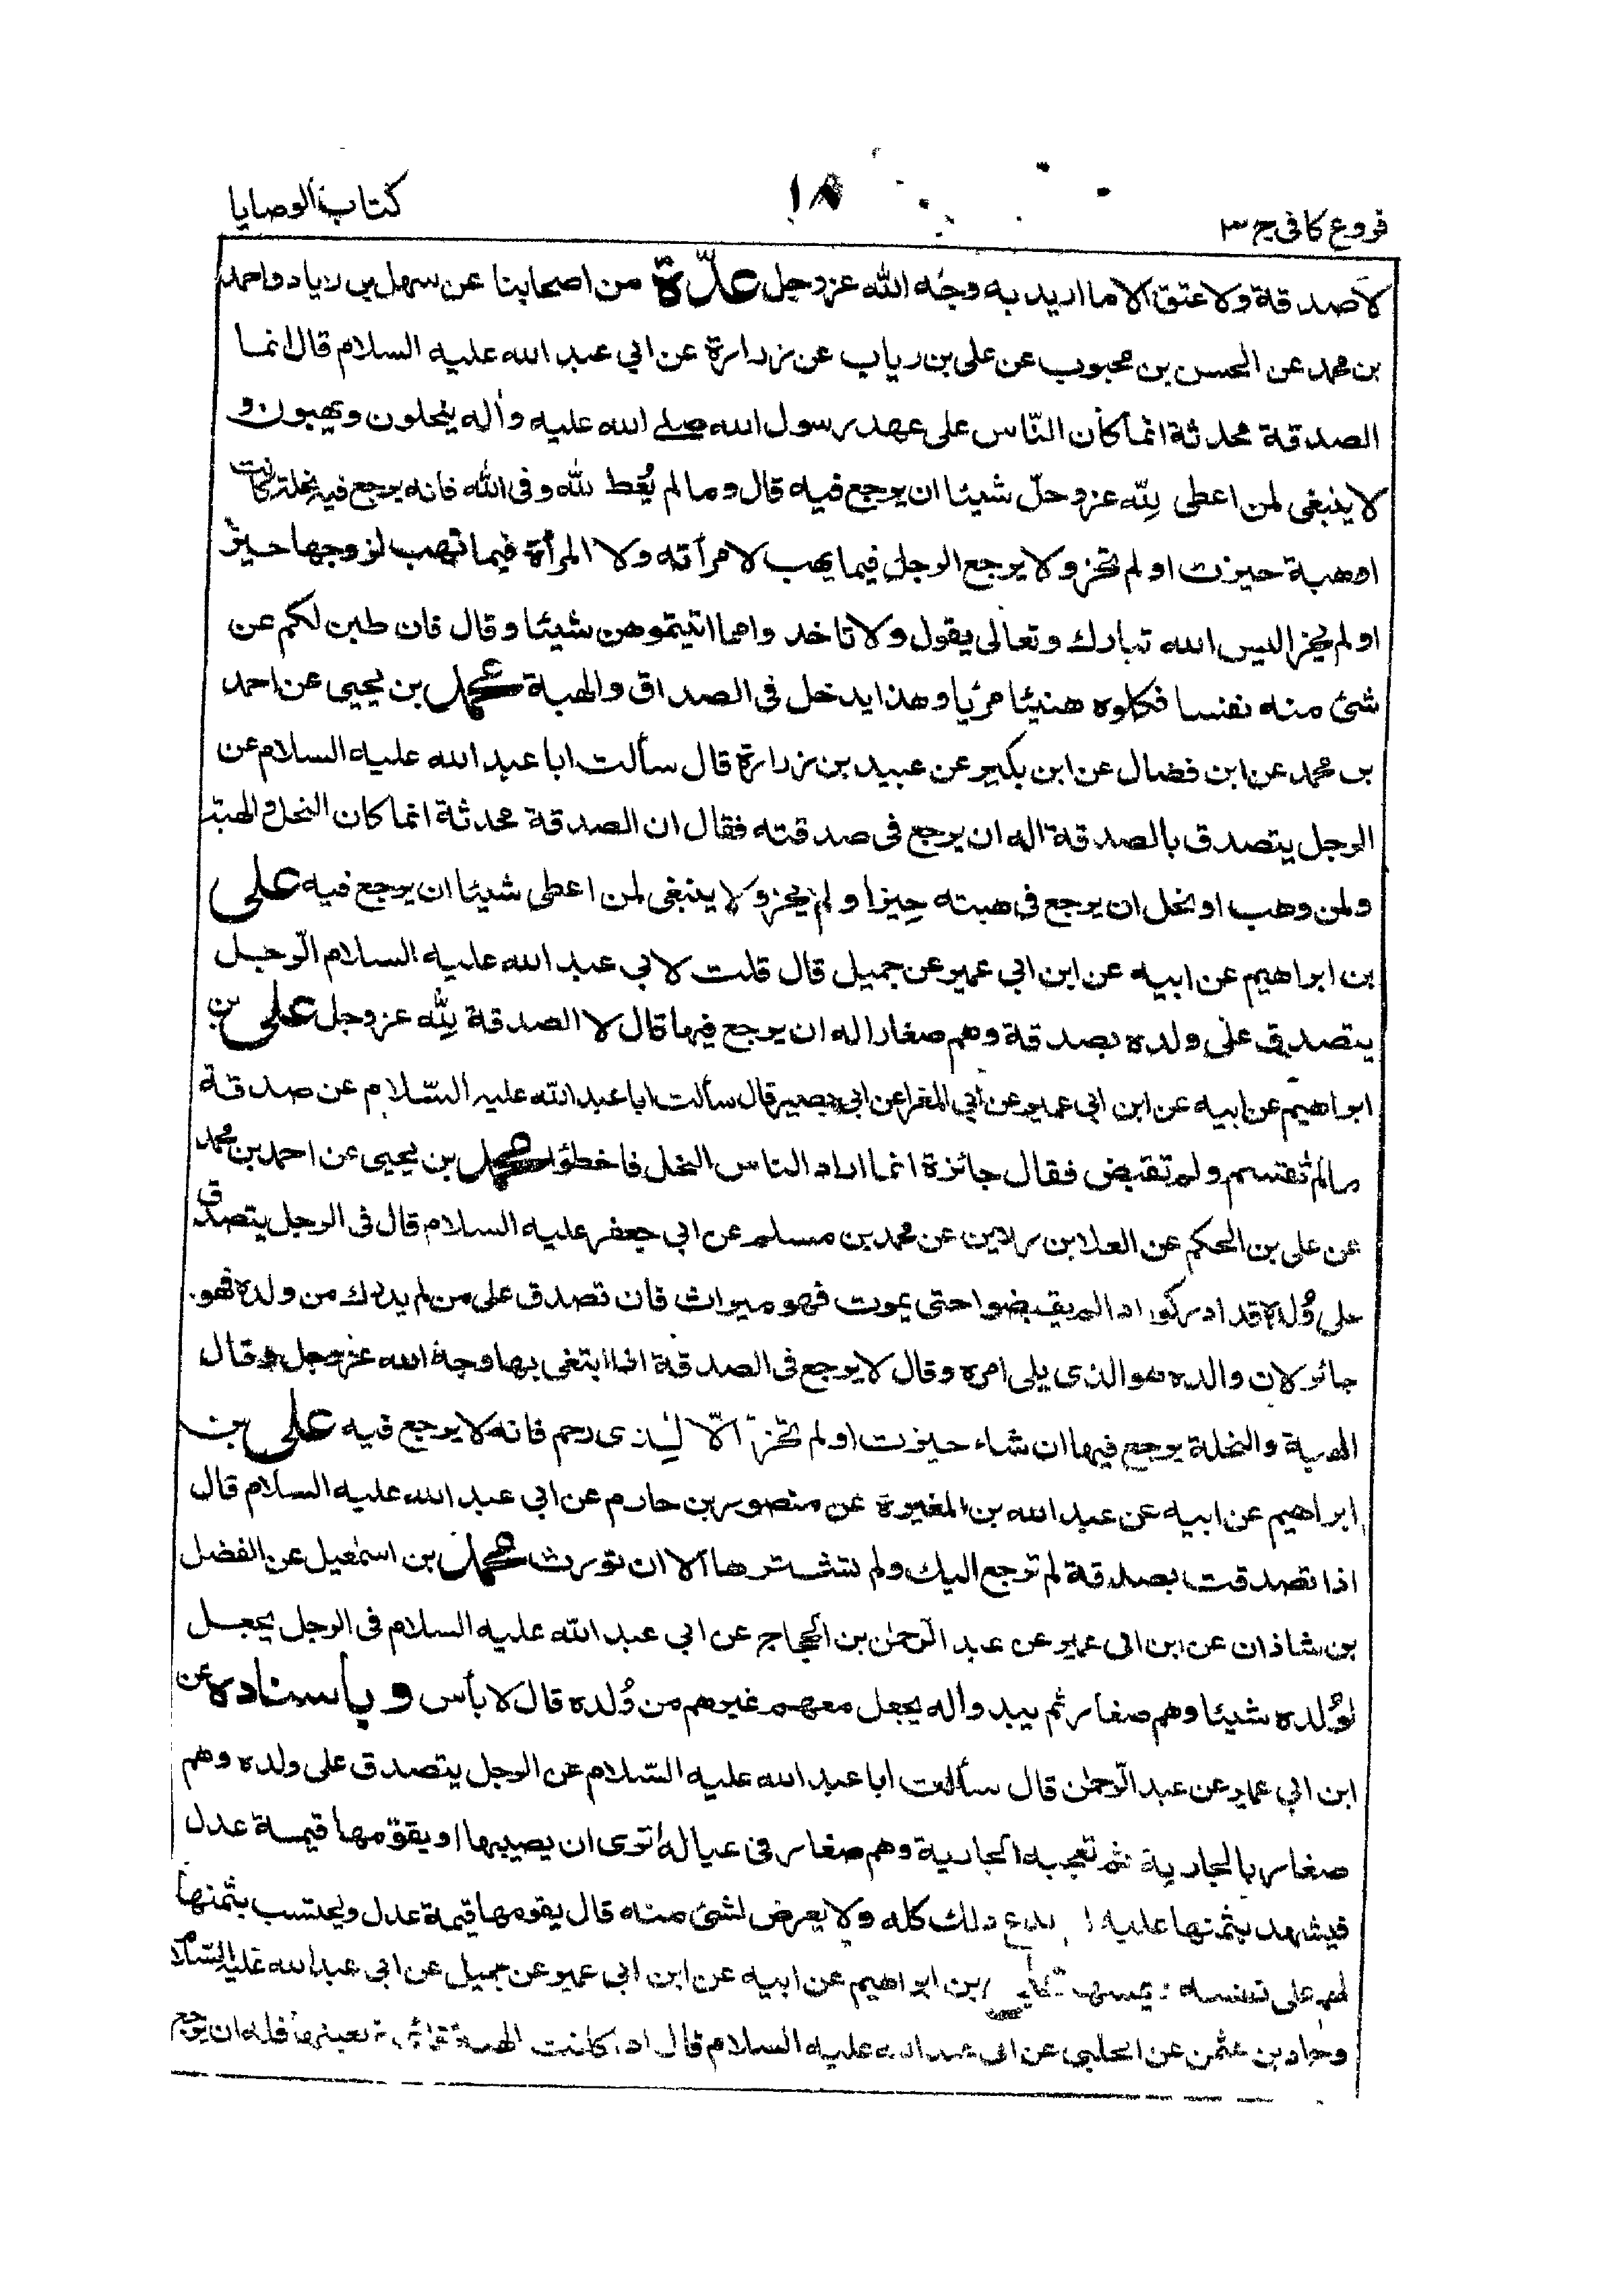 فروع كافى ج ٣
١٨
كتاب الوصايا
لا صدقة ولا عتق الا ما اريد به وجه الله عز وجل عدّة من اصحابنا عن سهل بن زياد واحمد
بن محمد عن الحسن بن محبوب عن على بن رياب عن زرارة عن ابي عبد الله عليه السلام قال انما
الصدقة محدثة انما كان النّاس على عهد رسول الله صلى الله عليه وأله ينحلون ويهبون و
لا ينبغى لمن اعطى لِلّه عز وجلّ شيئا ان يرجع فيه قال وما لم يُعط لله وفى الله فانه يرجع فيه نحلة كانت
او هبة حيزت او لم تحز ولا يرجع الرجل فيما يهب لامرأته ولا المرأة فيما تهب لزوجها حيز
او لم يحز اليس الله تبارك وتعالى يقول ولا تاخذ واحما اتيتموهن شيئا وقال فان طبن لكم عن
شئ منه نفسا فكلوه هنيئا مريا وهذا يدخل فى الصداق والهبة محمد بن يحيى عن احمد
بن محمد عن ابن فضال عن ابن بكير عن عبيد بن زرارة قال سألت ابا عبد الله عليه السلام عن
الرجل يتصدق بالصدقة اله ان يرجع فى صدقته فقال ان الصدقة محدثة انما كان النحل والهبة
ولمن وهب او نحل ان يرجع فى هبته حِيزا و لم يحز ولا ينبغى لمن اعطى شيئا ان يرجع فيه على
بن ابراهيم عن ابيه عن ابن ابي عمير عن جميل قال قلت لابي عبد الله عليه السلام الرّجل
يتصدق على ولده بصدقة وهم صغار اله ان يرجع فيها قال لا الصدقة لِلّه عز وجل على بن
ابراهيم عن ابيه عن ابن ابي عمير عن أبي المغرا عن ابي بصير قال سألت ابا عبد الله عليه السّلام عن صدقة
ما لم تقتسم ولم تقبض فقال جائزة انما اراد الناس النحل فاخطؤا محمد بن يحيى عن احمد بن محمد
عن على بن الحكم عن العلا بن رزين عن محمد بن مسلم عن ابي جعفر عليه السلام قال فى الرجل يتصدق
على وُلده قد ادركوا اذا لم يقبضوا حتى يموت فهو ميراث فان تصدق على من لم يدرك من ولده فهو
جائز لان والده هو الذى يلى امره وقال لا يرجع فى الصدقة اذا ابتغى بها وجه الله عز وجل وقال
الهبة والنحلة يرجع فيها ان شاء حيزت او لم تحز الّا لِذى رحم فانه لا يرجع فيه على بن
ابراهيم عن ابيه عن عبد الله بن المغيرة عن منصور بن حازم عن ابي عبد الله عليه السلام قال
اذا تصدقت بصدقة لم ترجع اليك ولم تشترها الا ان تورث محمد بن اسمٰعيل عن الفضل
بن شاذان عن ابن ابى عمير عن عبد الرّحمٰن بن الحجاج عن ابي عبد الله عليه السلام فى الرجل يجعل
لوُلده شيئا وهم صغار ثم يبد وأله يجعل معهم غيرهم من وُلده قال لا بأس وباسناده عن
ابن ابي عمير عن عبد الرّحمٰن قال سألت ابا عبد الله عليه السّلام عن الرجل يتصدق على ولده وهم
صغار بالجارية ثم تعجبه الجارية وهم صغار فى عياله أترى ان يصيبها او يقوّمها قيمة عدل
فيشهد بثمنها عليه ا يدع ذلك كله ولا يعرض لشئ منه قال يقومها قيمة عدل ويحتسب بثمنها
لهم على نفسه ويمسها على بن ابراهيم عن ابيه عن ابن ابى عمير عن جميل عن ابى عبد الله عليه السّلا
وحماد بن عثمن عن الحلبي عن ابى عبد الله عليه السلام قال اذا كانت الهبة قائمة بعينها فله ان يرجع